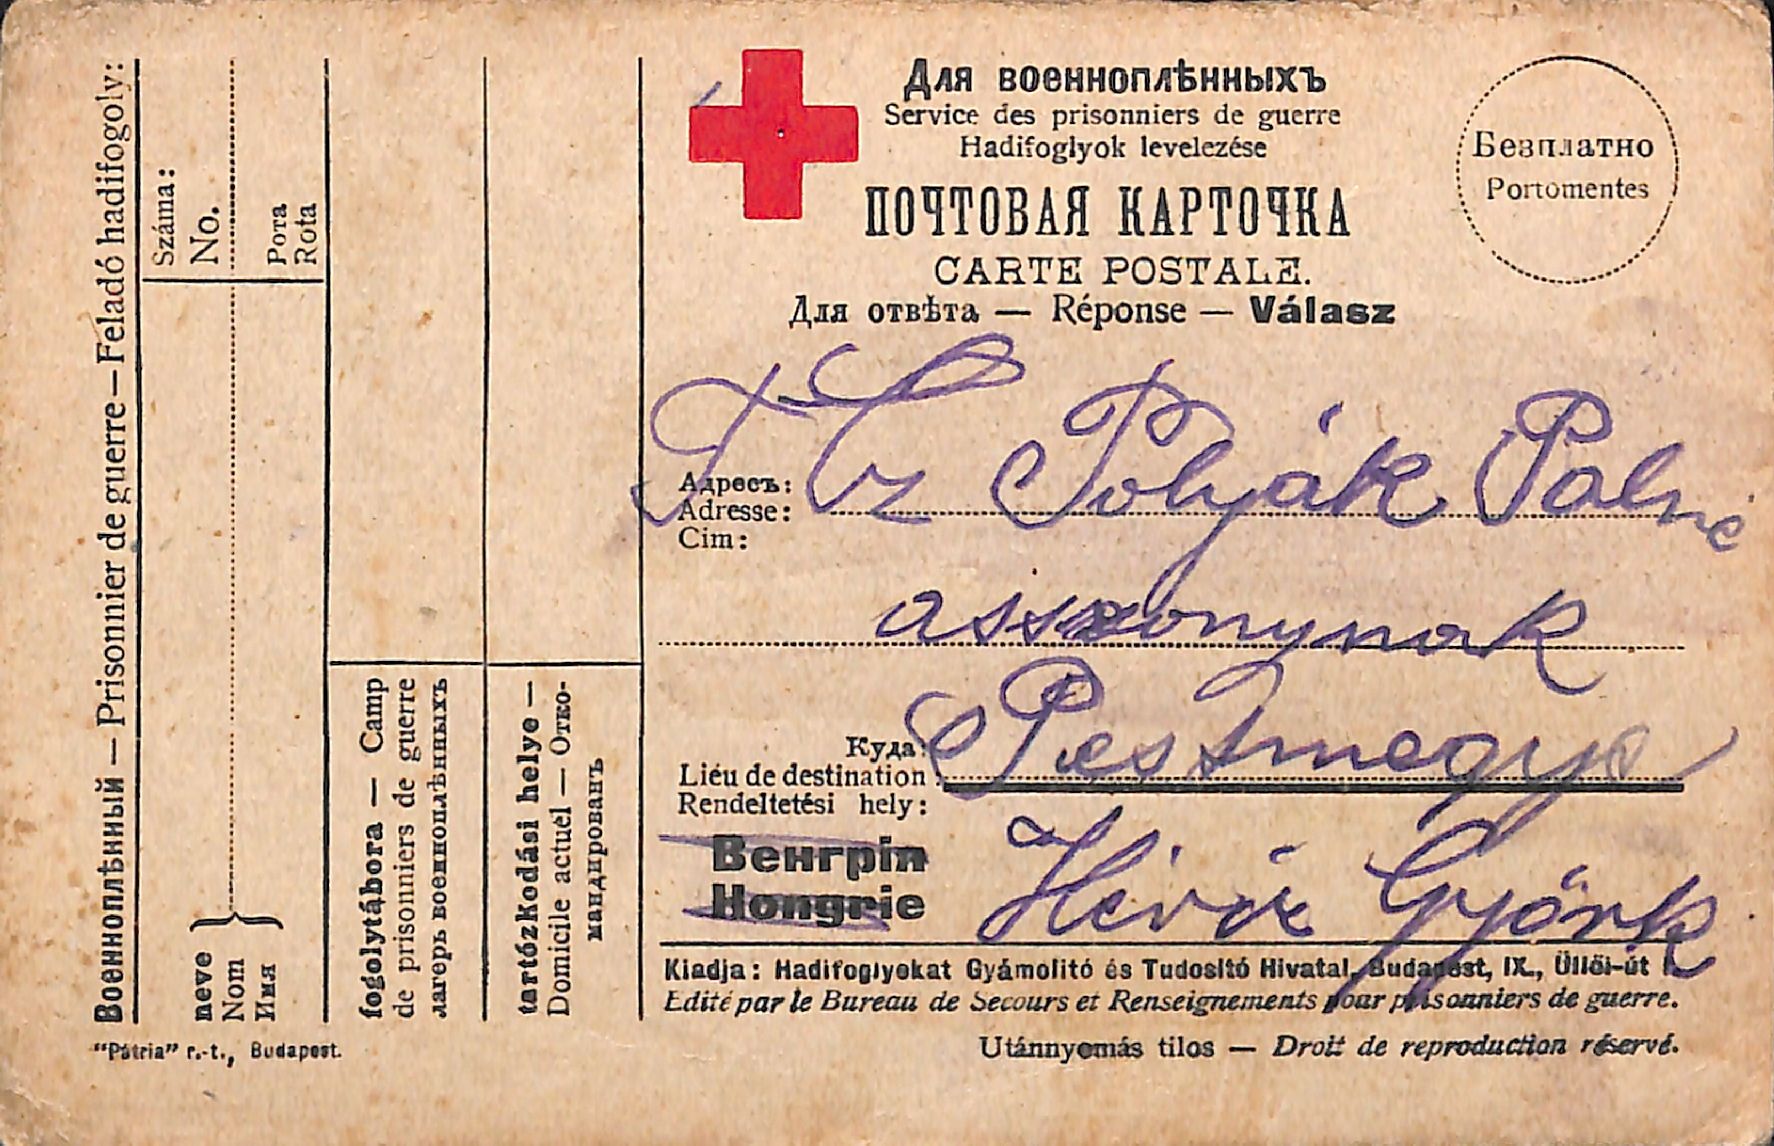 Военноплѣнный — Prisonnier de guerre — Feladó hadifogoly:
Száma:
No.
Рота
Rota
neve
Nom
Имя
fogolytábora — Camp
de prisonniers de guerre
лагерь военноплѣнныхъ
tartózkodási helye —
Domicile actuel — Отко-
мандированъ
"Pátria" r.-t., Budapest.
Для военноплѣнныхъ
Service des prisonniers de guerre
Hadifoglyok levelezése
ПОЧТОВАЯ КАРТОЧКА
CARTE POSTALE.
Для отвѣта — Réponse — Válasz
Безплатно
Portomentes
Адресъ:
Adresse:
Cim:
Polyák Palné
asszonynak
Куда:
Liéu de destination:
Rendeltetési hely:
Pestmegye
Венгрія
Hongrie
Hévíz Györk
Kiadja: Hadifoglyokat Gyámolitó és Tudositó Hivatal, Budapest, IX., Üllői-út 1.
Edité par le Bureau de Secours et Renseignements pour prisonniers de guerre.
Utánnyomás tilos — Droit de reproduction réservé.